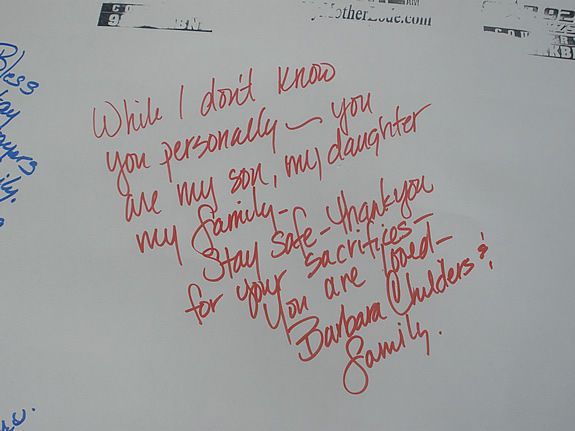 MotherLode.com
92
Bless
While I don't know
you personally – you
are my son, my daughter
my family –
Stay safe – thank you
for your sacrifices –
You are loved –
Barbara Childers &
family.